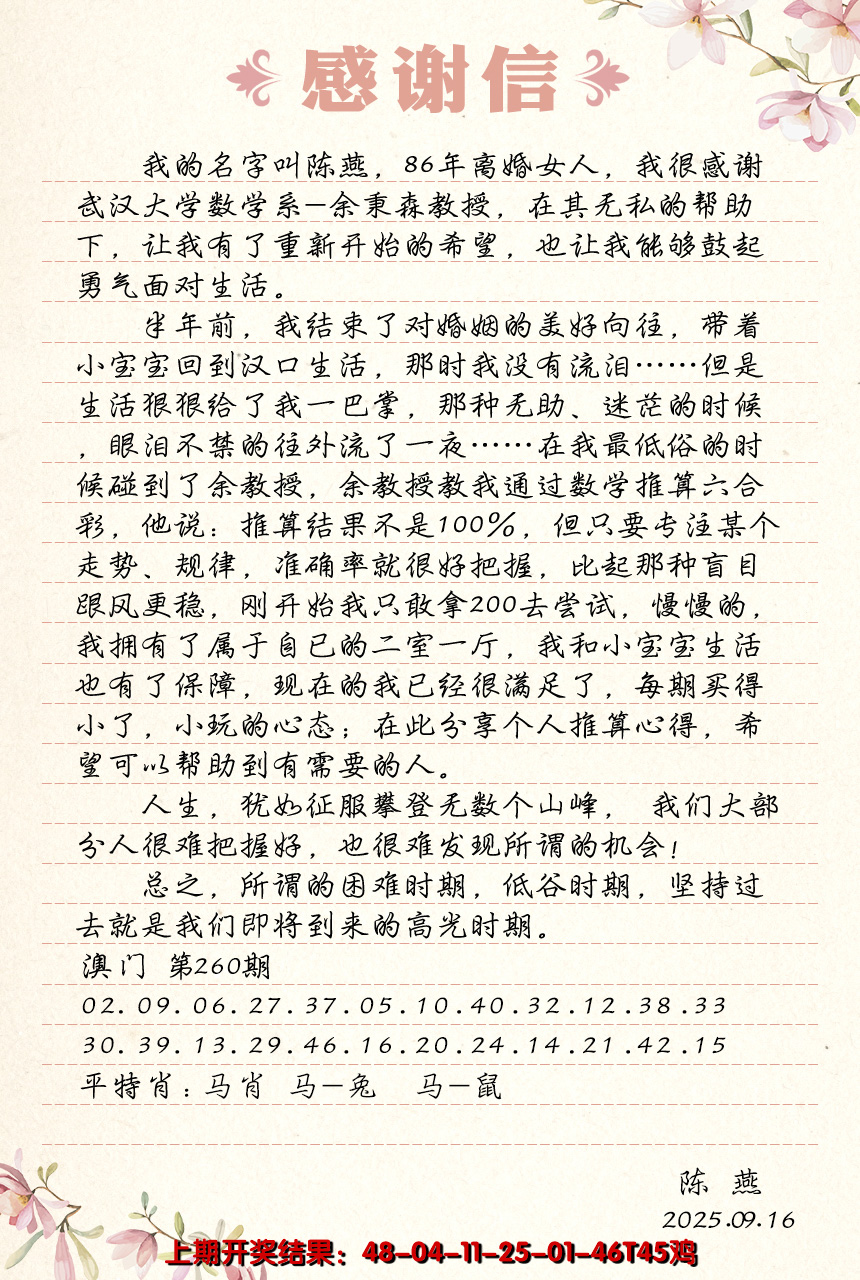 感谢信
我的名字叫陈燕，86年离婚女人，我很感谢
武汉大学数学系-余秉森教授，在其无私的帮助
下，让我有了重新开始的希望，也让我能够鼓起
勇气面对生活。
半年前，我结束了对婚姻的美好向往，带着
小宝宝回到汉口生活，那时我没有流泪……但是
生活狠狠给了我一巴掌，那种无助、迷茫的时候
，眼泪不禁的往外流了一夜……在我最低俗的时
候碰到了余教授，余教授教我通过数学推算六合
彩，他说：推算结果不是100%，但只要专注某个
走势、规律，准确率就很好把握，比起那种盲目
跟风更稳，刚开始我只敢拿200去尝试，慢慢的，
我拥有了属于自已的二室一厅，我和小宝宝生活
也有了保障，现在的我已经很满足了，每期买得
小了，小玩的心态；在此分享个人推算心得，希
望可以帮助到有需要的人。
人生，犹如征服攀登无数个山峰， 我们大部
分人很难把握好，也很难发现所谓的机会！
总之，所谓的困难时期，低谷时期，坚持过
去就是我们即将到来的高光时期。
澳门 第260期
02.09.06.27.37.05.10.40.32.12.38.33
30.39.13.29.46.16.20.24.14.21.42.15
平特肖：马肖 马-兔 马-鼠
陈 燕
2025.09.16
上期开奖结果：48-04-11-25-01-46T45鸡